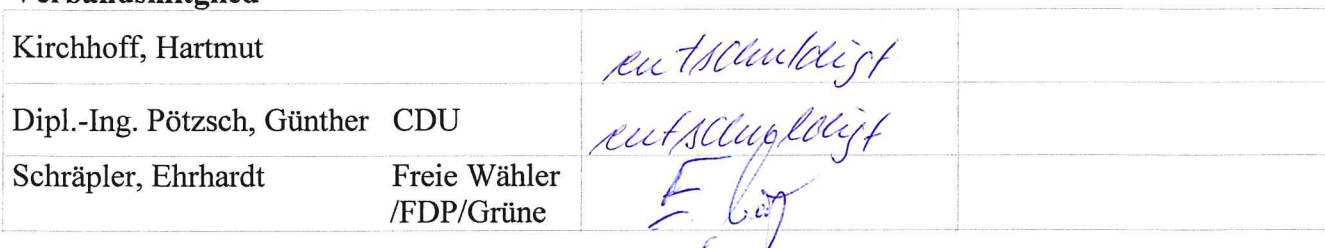 Verbandsmitglied
Kirchhoff, Hartmut entschuldigt
Dipl.-Ing. Pötzsch, Günther CDU entschuldigt
Schräpler, Ehrhardt Freie Wähler
/FDP/Grüne